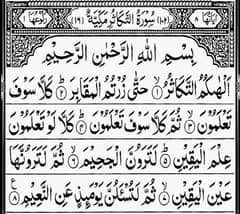 اٰیاتها ٨ (١٠٢) سُوْرَةُ التَّكَاثُرِ مَكِّيَّةٌ (١٦) رکوعها ١
بِسْمِ اللّٰهِ الرَّحْمٰنِ الرَّحِيْمِ
اَلْهٰىكُمُ التَّكَاثُرُ ۙ١ حَتّٰى زُرْتُمُ الْمَقَابِرَ ؕ٢ كَلَّا سَوْفَ
تَعْلَمُوْنَ ۙ٣ ثُمَّ كَلَّا سَوْفَ تَعْلَمُوْنَ ؕ٤ كَلَّا لَوْ تَعْلَمُوْنَ
عِلْمَ الْيَقِيْنِ ؕ٥ لَتَرَوُنَّ الْجَحِيْمَ ۙ٦ ثُمَّ لَتَرَوُنَّهَا
عَيْنَ الْيَقِيْنِ ۙ٧ ثُمَّ لَتُسْـَٔلُنَّ يَوْمَىِٕذٍ عَنِ النَّعِيْمِ ٨ ع